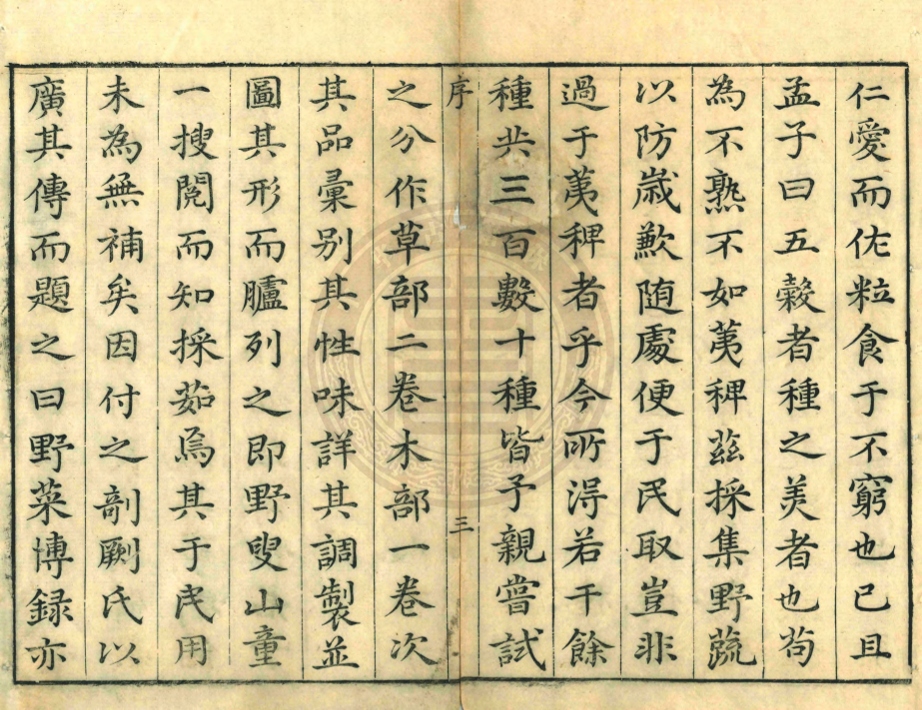 仁愛而佐粒食于不窮也已且
孟子曰五穀者種之美者也苟
為不熟不如荑稗茲採集野蔬
以防歲歉随處便于民取豈非
過于荑稗者乎今所淂若干餘
種共三百數十種皆予親嘗試
序 三
之分作草部二卷木部一卷次
其品彙别其性味詳其調製並
圖其形而臚列之即野叟山童
一搜閱而知採茹焉其于民用
未為無補矣因付之剞劂氏以
廣其傳而題之曰野菜博録亦